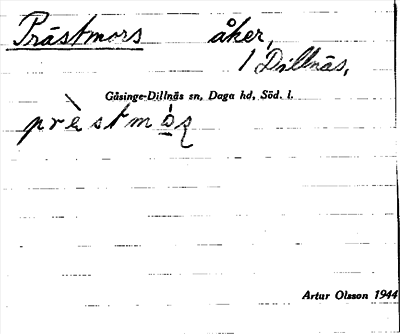 Prästmors åker,
1 Dillnäs,
Gåsinge-Dillnäs sn, Daga hd, Söd. l.
Artur Olsson 1944